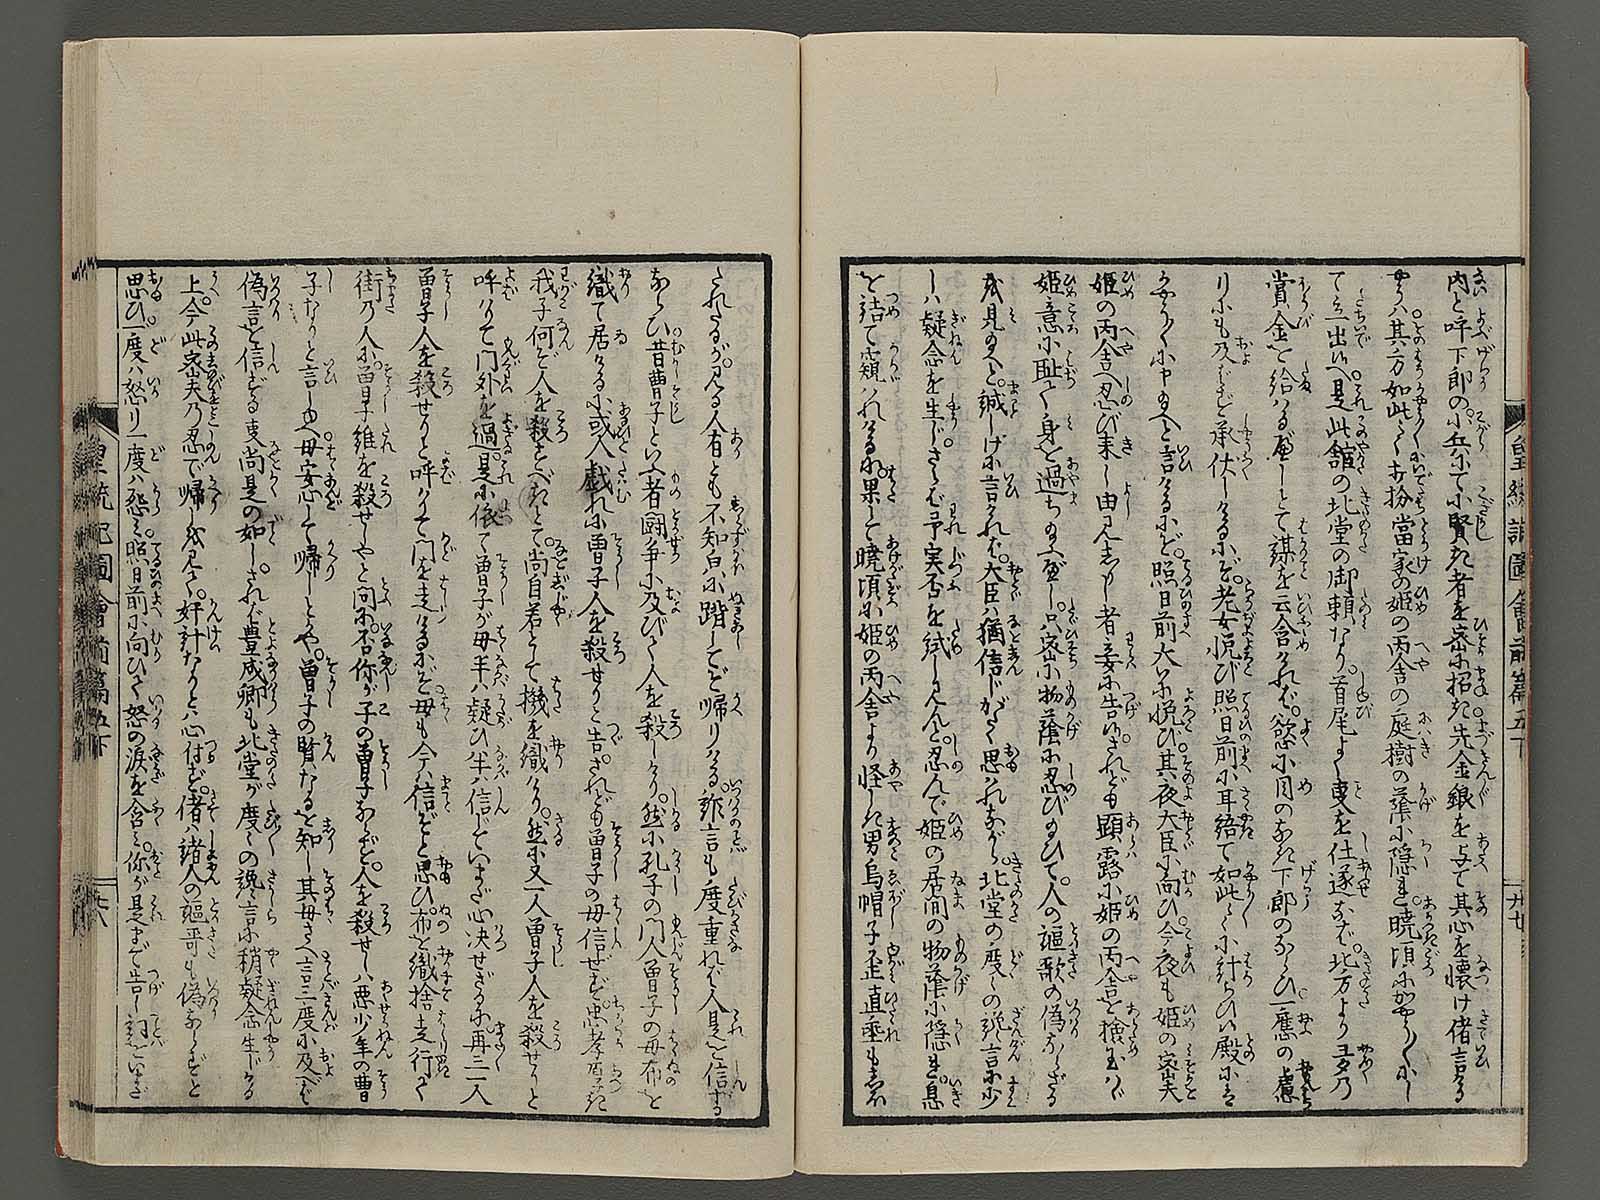 内と呼下郎の小兵にて小賢き者を密に招き先金銀を与て其心を懐け偖言ける
やうハ其方如此〳〵に打扮當家の姫の丙舎の庭樹の蔭に隠れ暁頃にかやう〳〵にし
て立出候へ是此舘の北堂の御頼なり首尾よく叓を仕遂なバ北方より夛くの
賞金を給はる遍しとて謀を云含けれバ慾に目のなき下郎のならひ一應の慮
りにも及バず承伏しけるにぞ老女悦び照日前に耳語て如此〳〵に計らひ候殿にハ
かやう〳〵に申給へと言けるにぞ照日前大に悦び其夜大臣に向ひ今夜も姫の密夫
姫の丙舎へ忍び来し由見し者妾に告候されども顕露に姫の丙舎を捜玉はゞ
姫意に恥て身を過ち給ふ遍し只密に物蔭に忍び給ひて人の謳歌の偽ならざる
を見給へと誠しげに言けれバ大臣ハ猶信じがたく思はれながら北堂の度〻の讒言に少
しハ疑念を生じさらバ予実否を試し見んと忍んで姫の居間の物蔭に隠れ息
を詰て窺はれけるに果して暁頃に姫の丙舎より怪しき男烏帽子歪直垂もしほ
たれたるが見る人有とも不知㒵に踏してぞ帰りける詐言も度重れバ人是を信ずる
ならひ昔曽子といふ者闘争に及びて人を殺しけり然に孔子の門人曽子の母布を
織て居けるに或人戯れに曽子人を殺せりと告されども曽子の母信ぜず忠孝厚き
我子何ぞ人を殺すべきとて尚自若として機を織けり然に又一人曽子人を殺せりと
呼りて門外を過是に依て曽子が母半ハ疑ひ半ハ信じていまだ心決せざるに再三一人
曽子人を殺せりと呼りて門を走けるにぞ母も今ハ信ぞと思ひ布を織捨走行て
街の人に曽子誰を殺せしやと問に否你が子の曽子ならず人を殺せしハ悪少年の曽
子なりと言しかバ母安心して帰りしとや曽子の賢なるを知し其母さへ言三度に及べバ
偽言を信ずる叓尚是の如しされバ豊成卿も北堂が度〻の讒言に稍疑念生じける
上今此密夫の忍で帰しを見て奸計なりとハ心付ず偖ハ諸人の謳哥も偽ならずと
思ひ一度ハ怒り一度ハ怨み照日前に向ひて怒の涙を含み你が是まで告し詞をいまだ
皇統記圖會前篇五下